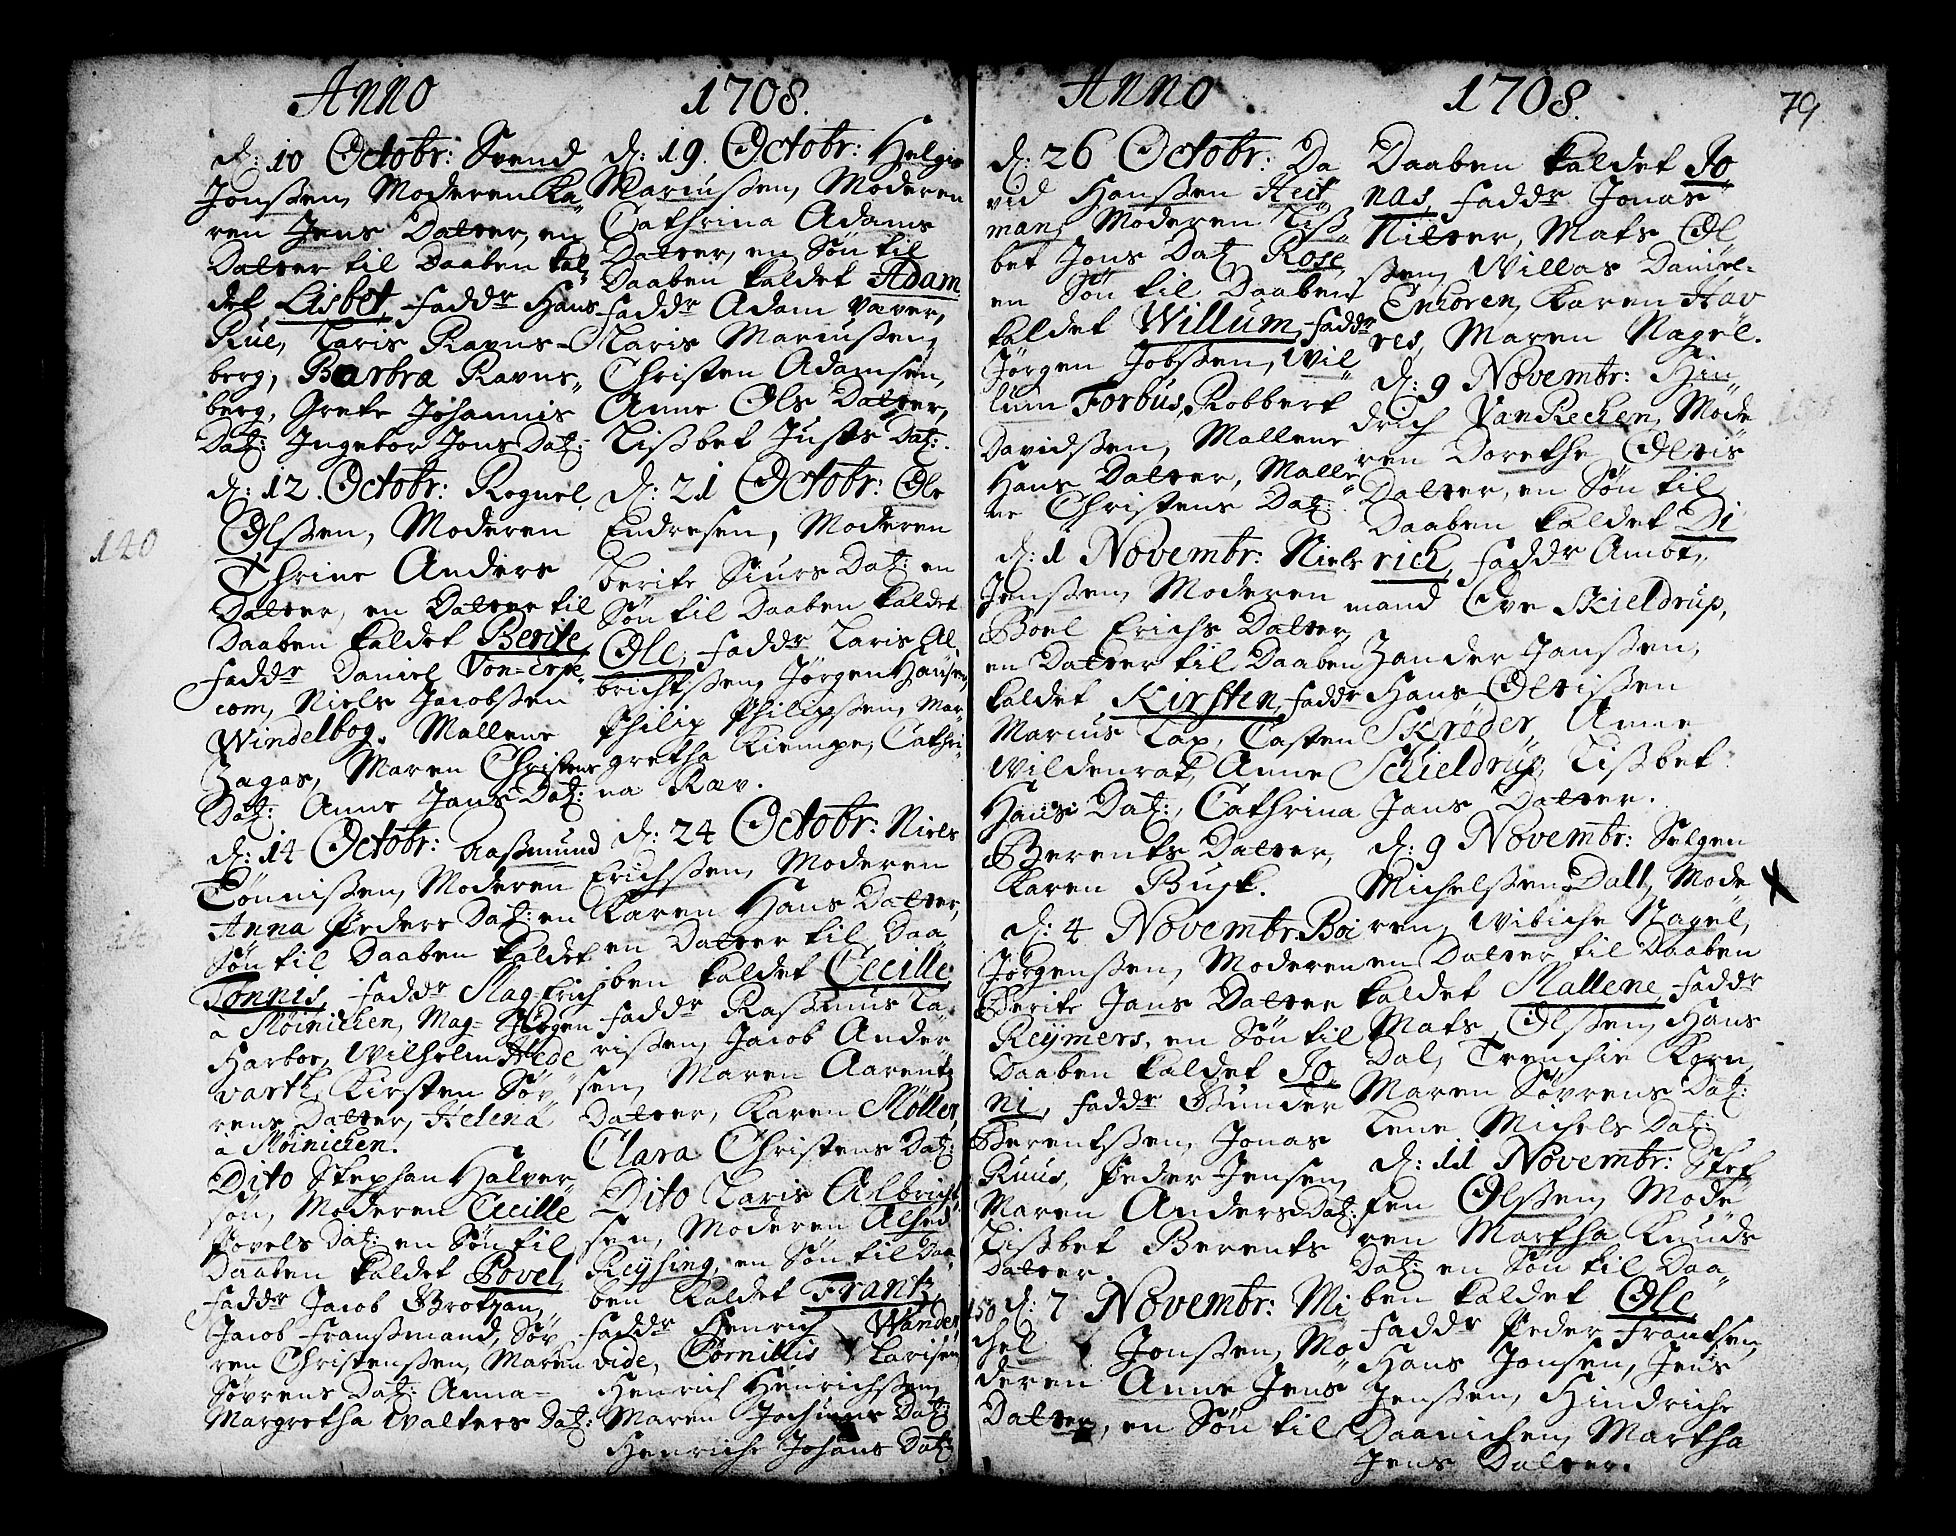 Anno 1708.
d: 10 Octobr: Svend
Jonssen, Moderen Ka„
ren Jens Datter, en
Datter til Daaben kal„
det Lisbet, Faddr Hans
Rue, Laris Ravns-
berg, Barbra Ravns„
berg, Grete Johannis
Dat: Ingebor Jons Dat:
d: 12. Octobr: Rognel
Olssen, Moderen
Thrine Anders
120
Datter, en Datter til
Daaben kaldet Berite,
Faddr Daniel Von-Erpe
com, Niels Jacobssen
Windelbog, Mallene
Zagas, Maren Christens
Dat: Anne Jans Dat:
d: 14 Octobr: Aassmund
Tönnissen, Moderen
Anna Peders Dat: en
Søn til Daaben kaldet
Tönnis, Faddr Mag-Erich
a Møinichen, Mag- Jørgen
Harboe, Wilhelm Hede
varth, Kirsten Søv„
rens Datter, Helena
a Møinichen.
Dito Stephan Halver„
sön, Moderen Cecille
Povels Dat: en Søn til
Daaben kaldet Povel,
Faddr Jacob Brotzan,
Jacob Franssmand, Söv
ren Christenssen, Maren
Søvrens Dat: Anna-
Margretha Walters Dat:
d: 19. Octobr: Helge
Mariussen, Moderen
Cathrina Adams
Datter, en Søn til
Daaben kaldet Adam
Faddr Adam Vaver,
Laris Mariussen,
Christen Adamsen,
Anne Ols Datter,
Lissbet Justs Dat:
d: 21 Octobr: Ole
Endresen, Moderen
Berite Siurs Dat: en
Søn til Daaben kaldet
Ole, Faddr Laris Al„
brichtssen, Jørgen Hansen,
Philip Philipssen, Mar„
gretha Kiempe, Cathri„
na Rav.
d: 24 Octobr: Niels
Erichssen, Moderen
Karen Hans Datter,
en Datter til Daa
ben kaldet Cecille,
Faddr Rassmus La„
rissen, Jacob Ander„
sen, Maren Aarentz
Datter, Karen Møller,
Clara Christens Dat:
Dito Laris Albricht
sen, Moderen Alhed
Reysing, en Søn til Daa„
ben kaldet Frantz,
Faddr Henrich Wander
vide, Cornillis Larisen
Henrich Henrichssen,
Maren Jochims Dat:
Henriche Johans Dat:
Anno 1708. 79
d: 26 Octobr: Da
vid Hanssen Heit„
man, Moderen Liss„
bet Jons Dat: Rose,
en Søn til Daaben
kaldet Willum, Faddr
Jørgen Jobssen, Wil„
lum Forbus, Robbert
Davidssen, Mallene
Hans Datter, Malle„
ne Christens Dat:
d: 1 Novembr: Niels
Jenssen, Moderen
Boel Erichs Datter,
en Datter til Daaben
kaldet Kirsten, Faddr
Marius Lax, Casten
Wildenrat, Anne
Hans Dat:, Cathrina
Berents Datter,
Karen Busk.
d: 4 Novembr: Boi
Jørgenssen, Moderen
Berite Jans Datter
Reymers, en Søn til
Daaben kaldet Jo„
ni, Faddr Gunder
Berentssen, Jonas
Ruus, Peder Jensen,
Maren Anders Dat:
Lissbet Berents
Datter.
150 d: 7 Novembr: Mi
chel Jonssen, Mo
deren Anne Jens
Datter, en Søn til
Daaben kaldet Jo„
nas, Faddr Jonas
Nitter, Mats Ol„
ssen, Willas Daniel-
Enhoren, Karen Hav
res, Maren Nagel.
d: 9 Novembr: Hin„
drich Van Rechen, Mode
ren Dorethe Oltis
Datter, en Søn til
Daaben kaldet Di
rich, Faddr Amot„
mand Ove Skieldrup,
Zander Janssen,
Hans Oltissen
Skrøder, Anne
Schieldrup, Lissbet
Jans Datter.
d: 9 Novembr: Selgen
Michelssen Dall, Mode
ren, Wibiche Nagel,
en Datter til Daaben
kaldet Mallene, Faddr
Mats Olssen, Hans
Dal, Trenchie Korn,
Maren Søvrens Dat:
Lene Michels Dat:
d: 11 Novembr: Stef
fen Olssen, Mode
ren Martha Knuds
Dat: en Søn til Daa„
ben kaldet Ole,
Faddr Peder Frantsen,
Hans Jonsen, Jens
Jenssen, Hindriche
Daanichen, Martha
Jens Datter.